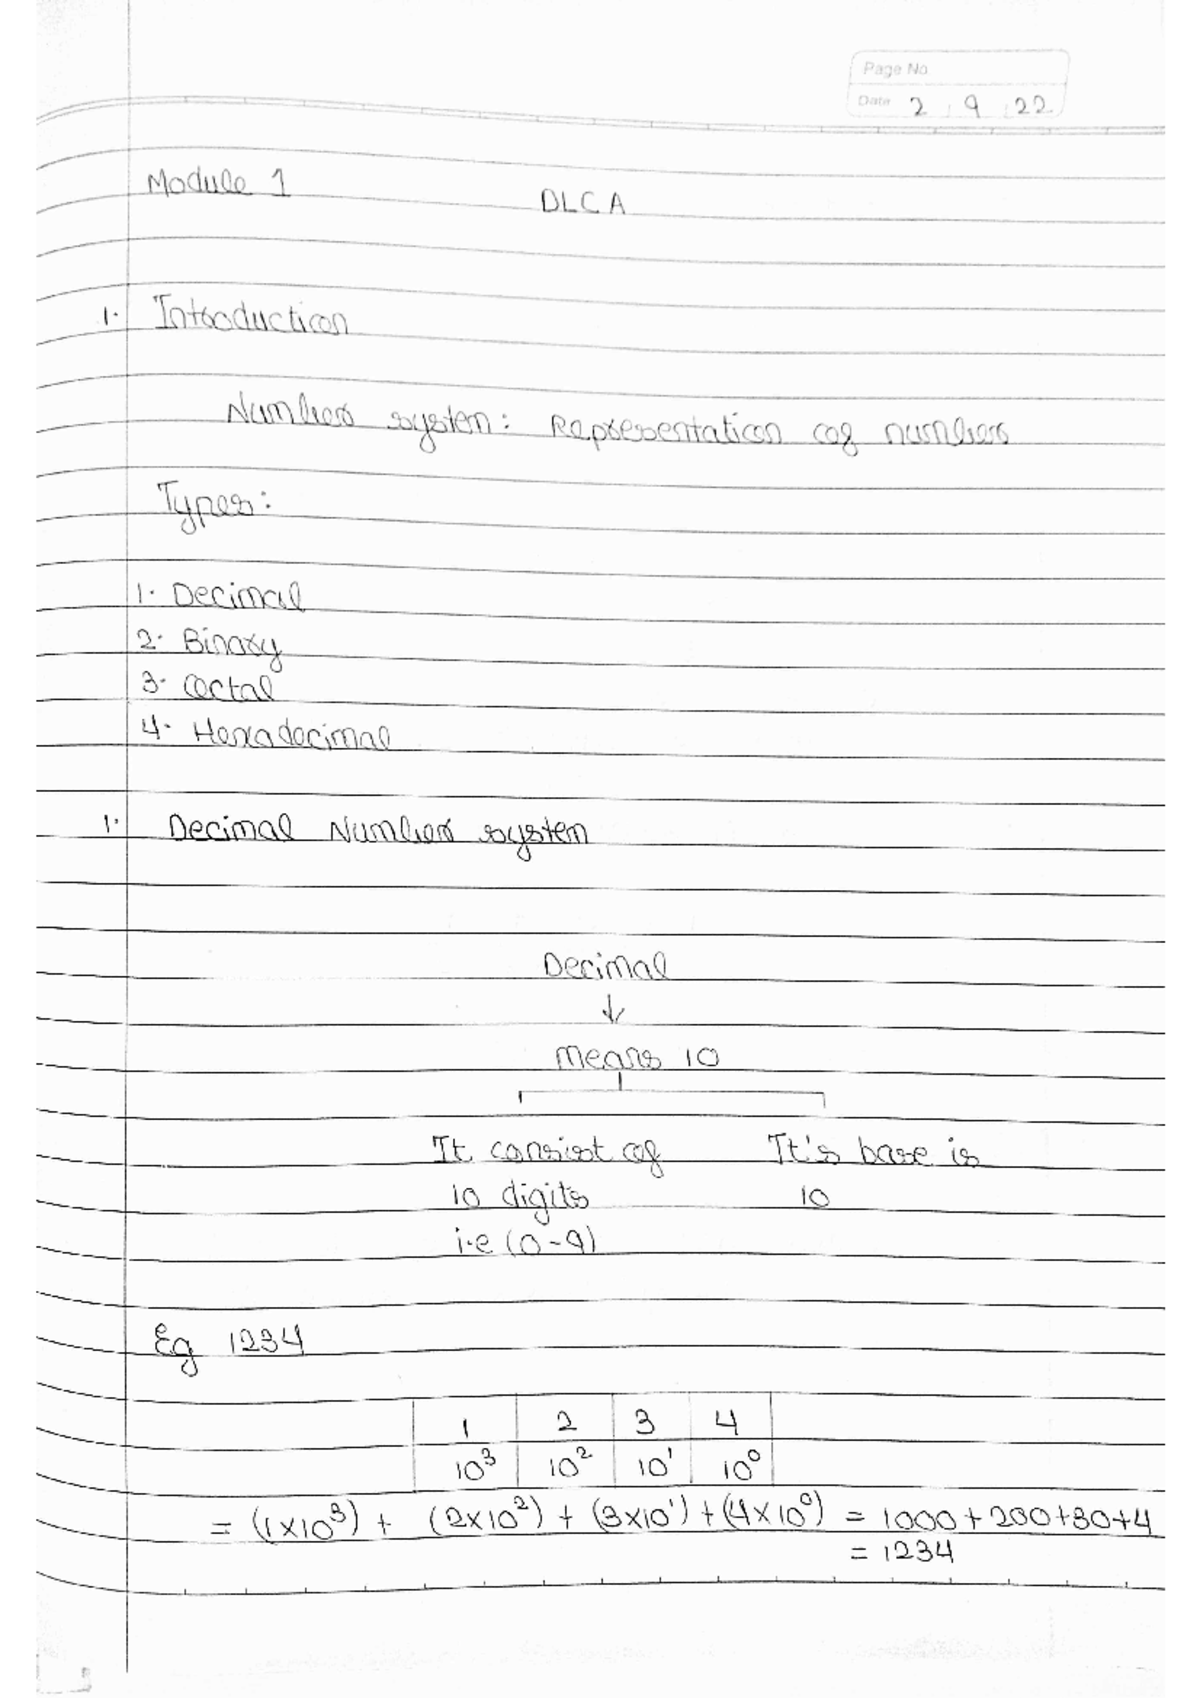 Page No
Date 2 9 22
Module 1
DLCA
1. Introduction
Number system: Representation of numbers
Types:
1. Decimal
2. Binary
3. Octal
4. Hexadecimal
1. Decimal Number system
Decimal
↓
means 10
It consist of It's base is
10 digits 10
i.e (0-9)
Eg 1234
1 2 3 4
10³ 10² 10¹ 10⁰
= (1×10³) + (2×10²) + (3×10¹) + (4×10⁰) = 1000+200+30+4
= 1234